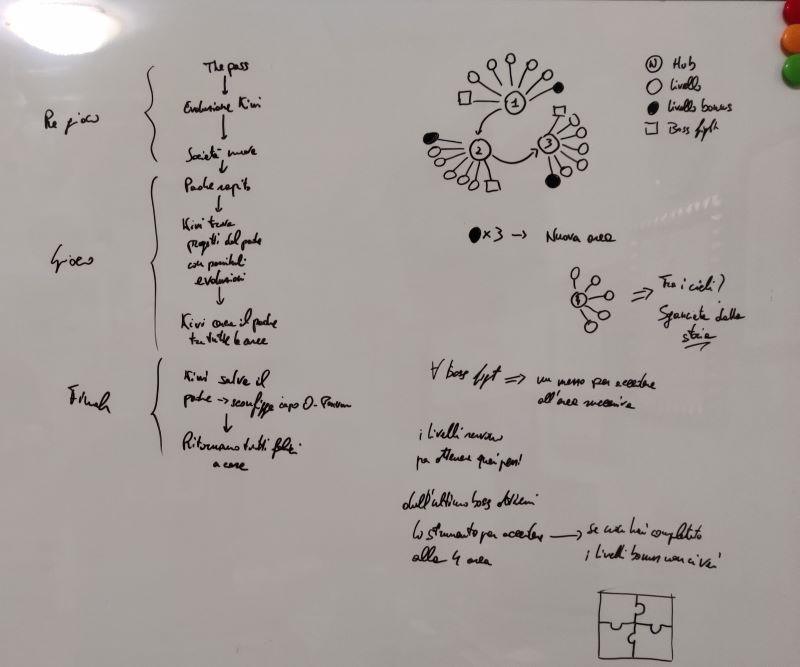 The pass
Evoluzione Kiwi
Pre gioco
Società nuova
Padre rapito
Kiwi trova
progetti del padre
con possibili
evoluzioni
Gioco
Kiwi cerca il padre
tra tutte le aree
Kiwi salva il
padre → sconfigge capo
Finale
Ritornano tutti felici
a casa
1
2
3
N Hub
Livello
Livello bonus
Boss fight
×3 → Nuova area
4
⇒ Tra i cieli?
Sganciata dalla
storia
∀ boss fight ⇒ un mezzo per accedere
all'area successiva
i livelli servono
per ottenere quei pezzi
dall'ultimo boss ottieni
lo strumento per accedere → se non hai completato
alla 4 area
i livelli bonus non ci vai